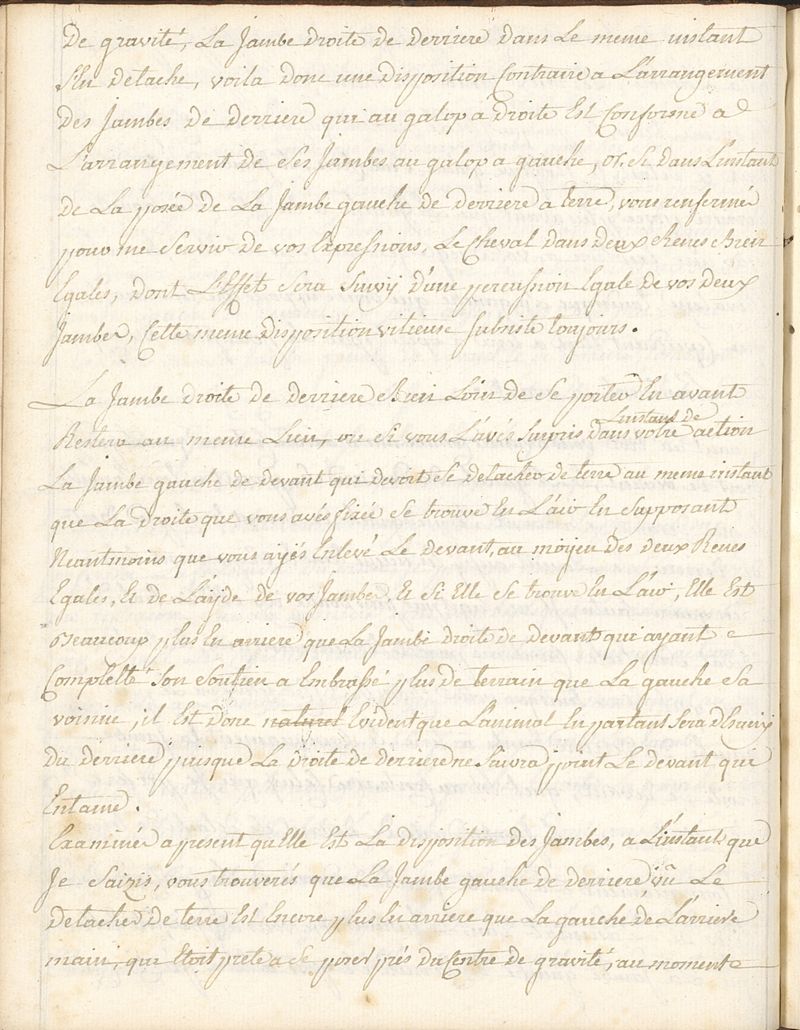 De gravité, La Jambe droite de derriere dans Le meme instant
S'en detache, voila donc une disposition Contraire a L'arrangement
Des Jambes de derriere qui au galop a droite Est Conforme a
L'arrangement de Ses Jambes au galop a gauche, or, Si dans L'instant
de La posée de La Jambe gauche de derriere a terre, vous renfermés
pour me Servir de vos Expressions, Le Cheval dans deux Renes Bien
Egales, dont L'Effet Sera Suivy d'une percussion Egale de vos deux
Jambes, Cette meme disposition vitieuse subsiste toujours.
La Jambe droite de derriere Bien Loin de Se porter En avant
Restera au meme Lieu, ou Si vous L'avés Surpris dans L'instant de votre action
La Jambe gauche de devant qui devoit Se detacher de terre au meme instant
que La droite que vous avés fixée Se trouve En L'air En Supposant
Neantmoins que vous ayés Enlevé Le devant, au moyen des deux Renes
Egales, Et de L'ayde de vos Jambes, Et Si Elle Se trouve En L'air, Elle Est
Beaucoup plus En arriere que La Jambe droite de devant qui ayant
Complette Son Soutien a Embrassé plus de terrain que La gauche Sa
voisine, il Est donc naturel Evident que L'animal En partant Sera desuny
du derriere puisque La Droite de derriere ne Suivra point Le devant qui
Entame.
Examinés apresent quElle Est La disposition des Jambes, a L'instant que
Je Saizis, vous trouverés que La Jambe gauche de derriere Le
Detacher De terre Est Encore plus En arriere que La gauche de L'arriere
main, qui Etoit prete a Se poser prés du Centre de gravité, au moment